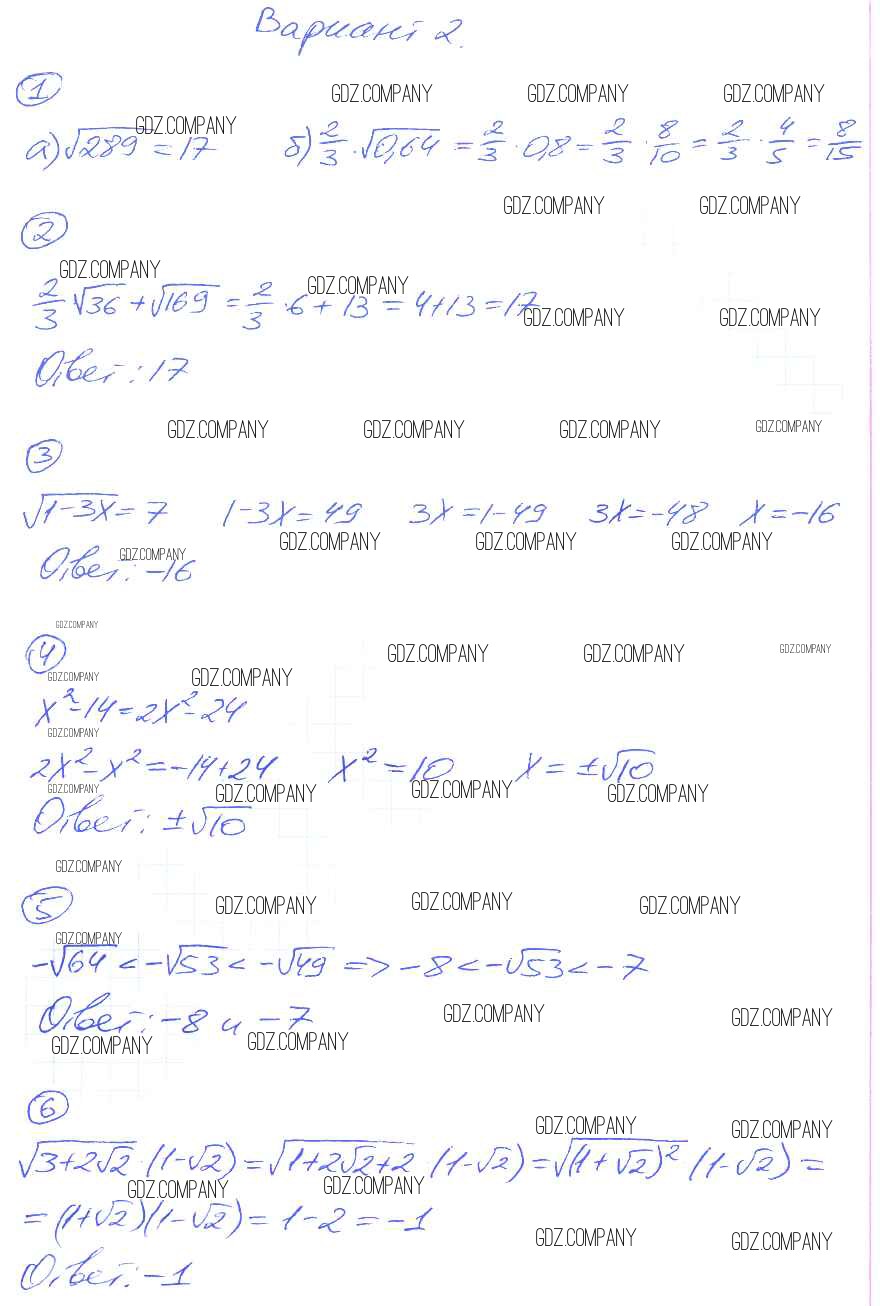 Вариант 2.
GDZ.COMPANY GDZ.COMPANY GDZ.COMPANY
1
GDZ.COMPANY
а) √289 = 17 б) 2/3 · √0,64 = 2/3 · 0,8 = 2/3 · 8/10 = 2/3 · 4/5 = 8/15
GDZ.COMPANY GDZ.COMPANY
2
GDZ.COMPANY GDZ.COMPANY
2/3 √36 + √169 = 2/3 · 6 + 13 = 4+13 = 17
GDZ.COMPANY GDZ.COMPANY
Ответ: 17
GDZ.COMPANY GDZ.COMPANY GDZ.COMPANY GDZ.COMPANY
3
√(1-3x) = 7 1-3x = 49 3x = 1-49 3x = -48 x = -16
GDZ.COMPANY GDZ.COMPANY GDZ.COMPANY GDZ.COMPANY
Ответ: -16
GDZ.COMPANY
4 GDZ.COMPANY GDZ.COMPANY GDZ.COMPANY
GDZ.COMPANY GDZ.COMPANY
x²-14 = 2x²-24
GDZ.COMPANY
2x²-x² = -14+24 x² = 10 x = ±√10
GDZ.COMPANY GDZ.COMPANY GDZ.COMPANY GDZ.COMPANY
Ответ: ±√10
GDZ.COMPANY
5 GDZ.COMPANY GDZ.COMPANY GDZ.COMPANY
GDZ.COMPANY
-√64 < -√53 < -√49 => -8 < -√53 < -7
Ответ: -8 и -7 GDZ.COMPANY GDZ.COMPANY
GDZ.COMPANY GDZ.COMPANY
6
GDZ.COMPANY GDZ.COMPANY
√(3+2√2) · (1-√2) = √(1+2√2+2) (1-√2) = √((1+√2)²) (1-√2) =
GDZ.COMPANY GDZ.COMPANY
= (1+√2)(1-√2) = 1-2 = -1
GDZ.COMPANY GDZ.COMPANY
Ответ: -1